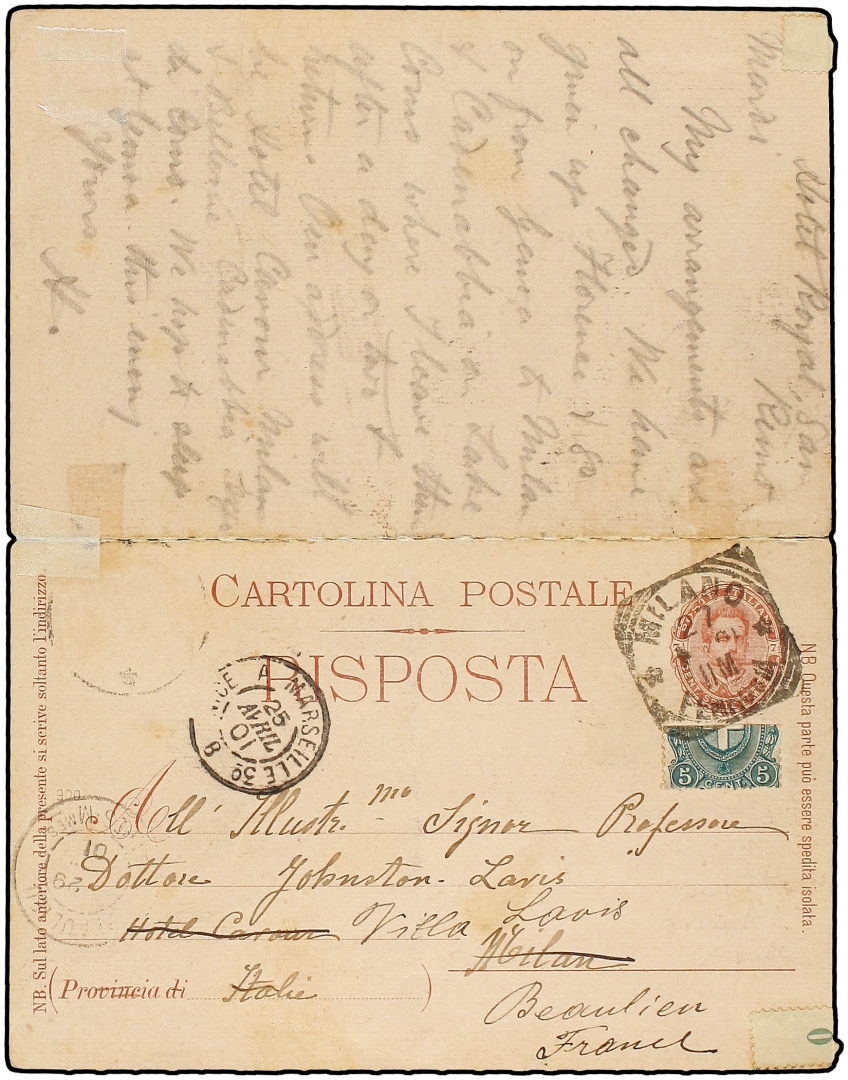 Hotel Royal, San
Remo
Mardi.
My arrangements are
all changed. We have
given up Florence & go
on from Genoa to Milan
& Cadenabbia on Lake
Como where I leave them
after a day or two &
return. Our address will
be Hotel Cavour Milan
& Bellevue Cadenabbia Lago
di Como. We hope to sleep
at Genoa this evening
Yours
H.
CARTOLINA POSTALE
RISPOSTA
MILANO
FERROVIA
5 CENT. 5
NICE A MARSEILLE 3º
25
AVRIL
01
B
01
29
All' Illustr.mo Signor Professore
Dottore Johnston-Lavis
Hotel Cavour Villa Lavis
Milan
(Provincia di Italie)
Beaulieu
France
NB. Sul lato anteriore della presente si scrive soltanto l'indirizzo.
NB. Questa parte può essere spedita isolata.
0